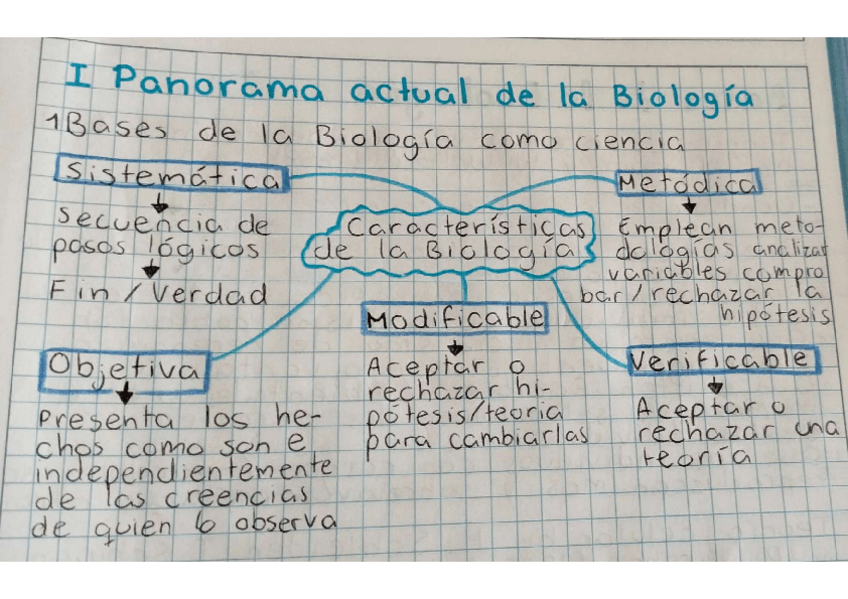 I Panorama actual de la Biología
1 Bases de la Biología como ciencia
Sistemática
Secuencia de
pasos lógicos
Fin / Verdad
Características
de la Biología
Metódica
Emplean meto-
dologías analizar
variables compro
bar/rechazar la
hipótesis
Objetiva
Presenta los he-
chos como son e
independientemente
de las creencias
de quien lo observa
Modificable
Aceptar o
rechazar hi-
pótesis/teoria
para cambiarlas
Verificable
Aceptar o
rechazar una
teoría